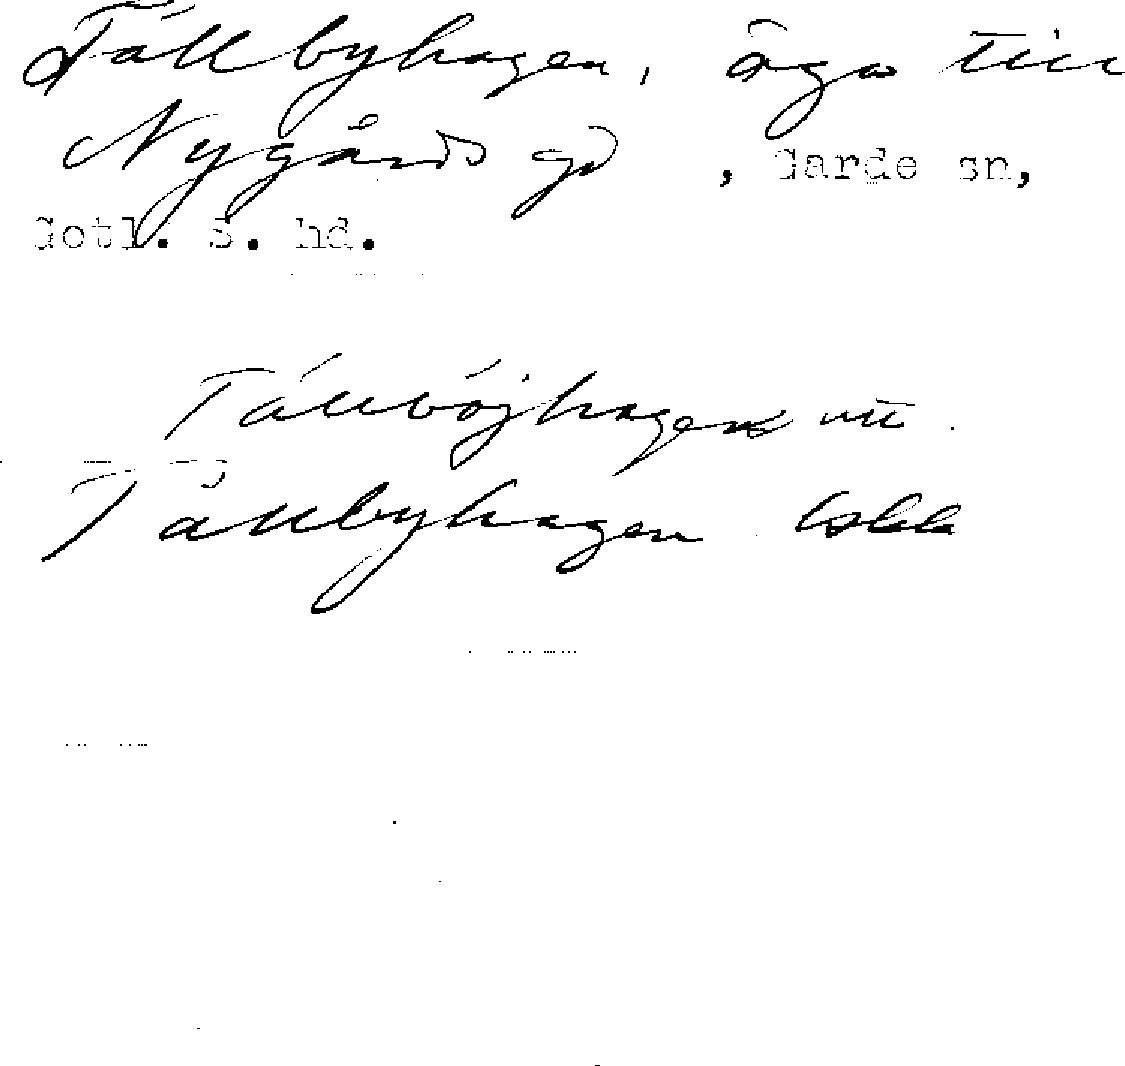 Tällbyhagen, ägo till
Nygårds gd , Garde sn,
Gotl. S. hd.
Tällböjhagen utt.
Tällbyhagen